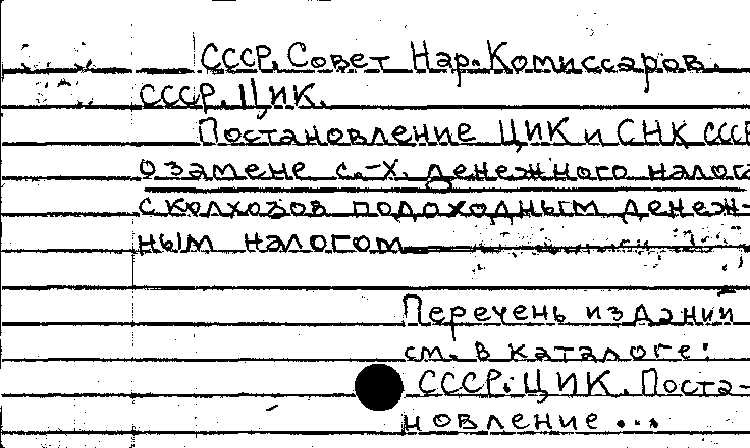 СССР. Совет Нар. Комиссаров.
СССР. ЦИК.
Постановление ЦИК и СНК СССР
о замене с.-х. денежного налога
с колхозов подоходным денеж-
ным налогом
Перечень изданий
см. в каталоге:
СССР. ЦИК. Поста-
новление ...